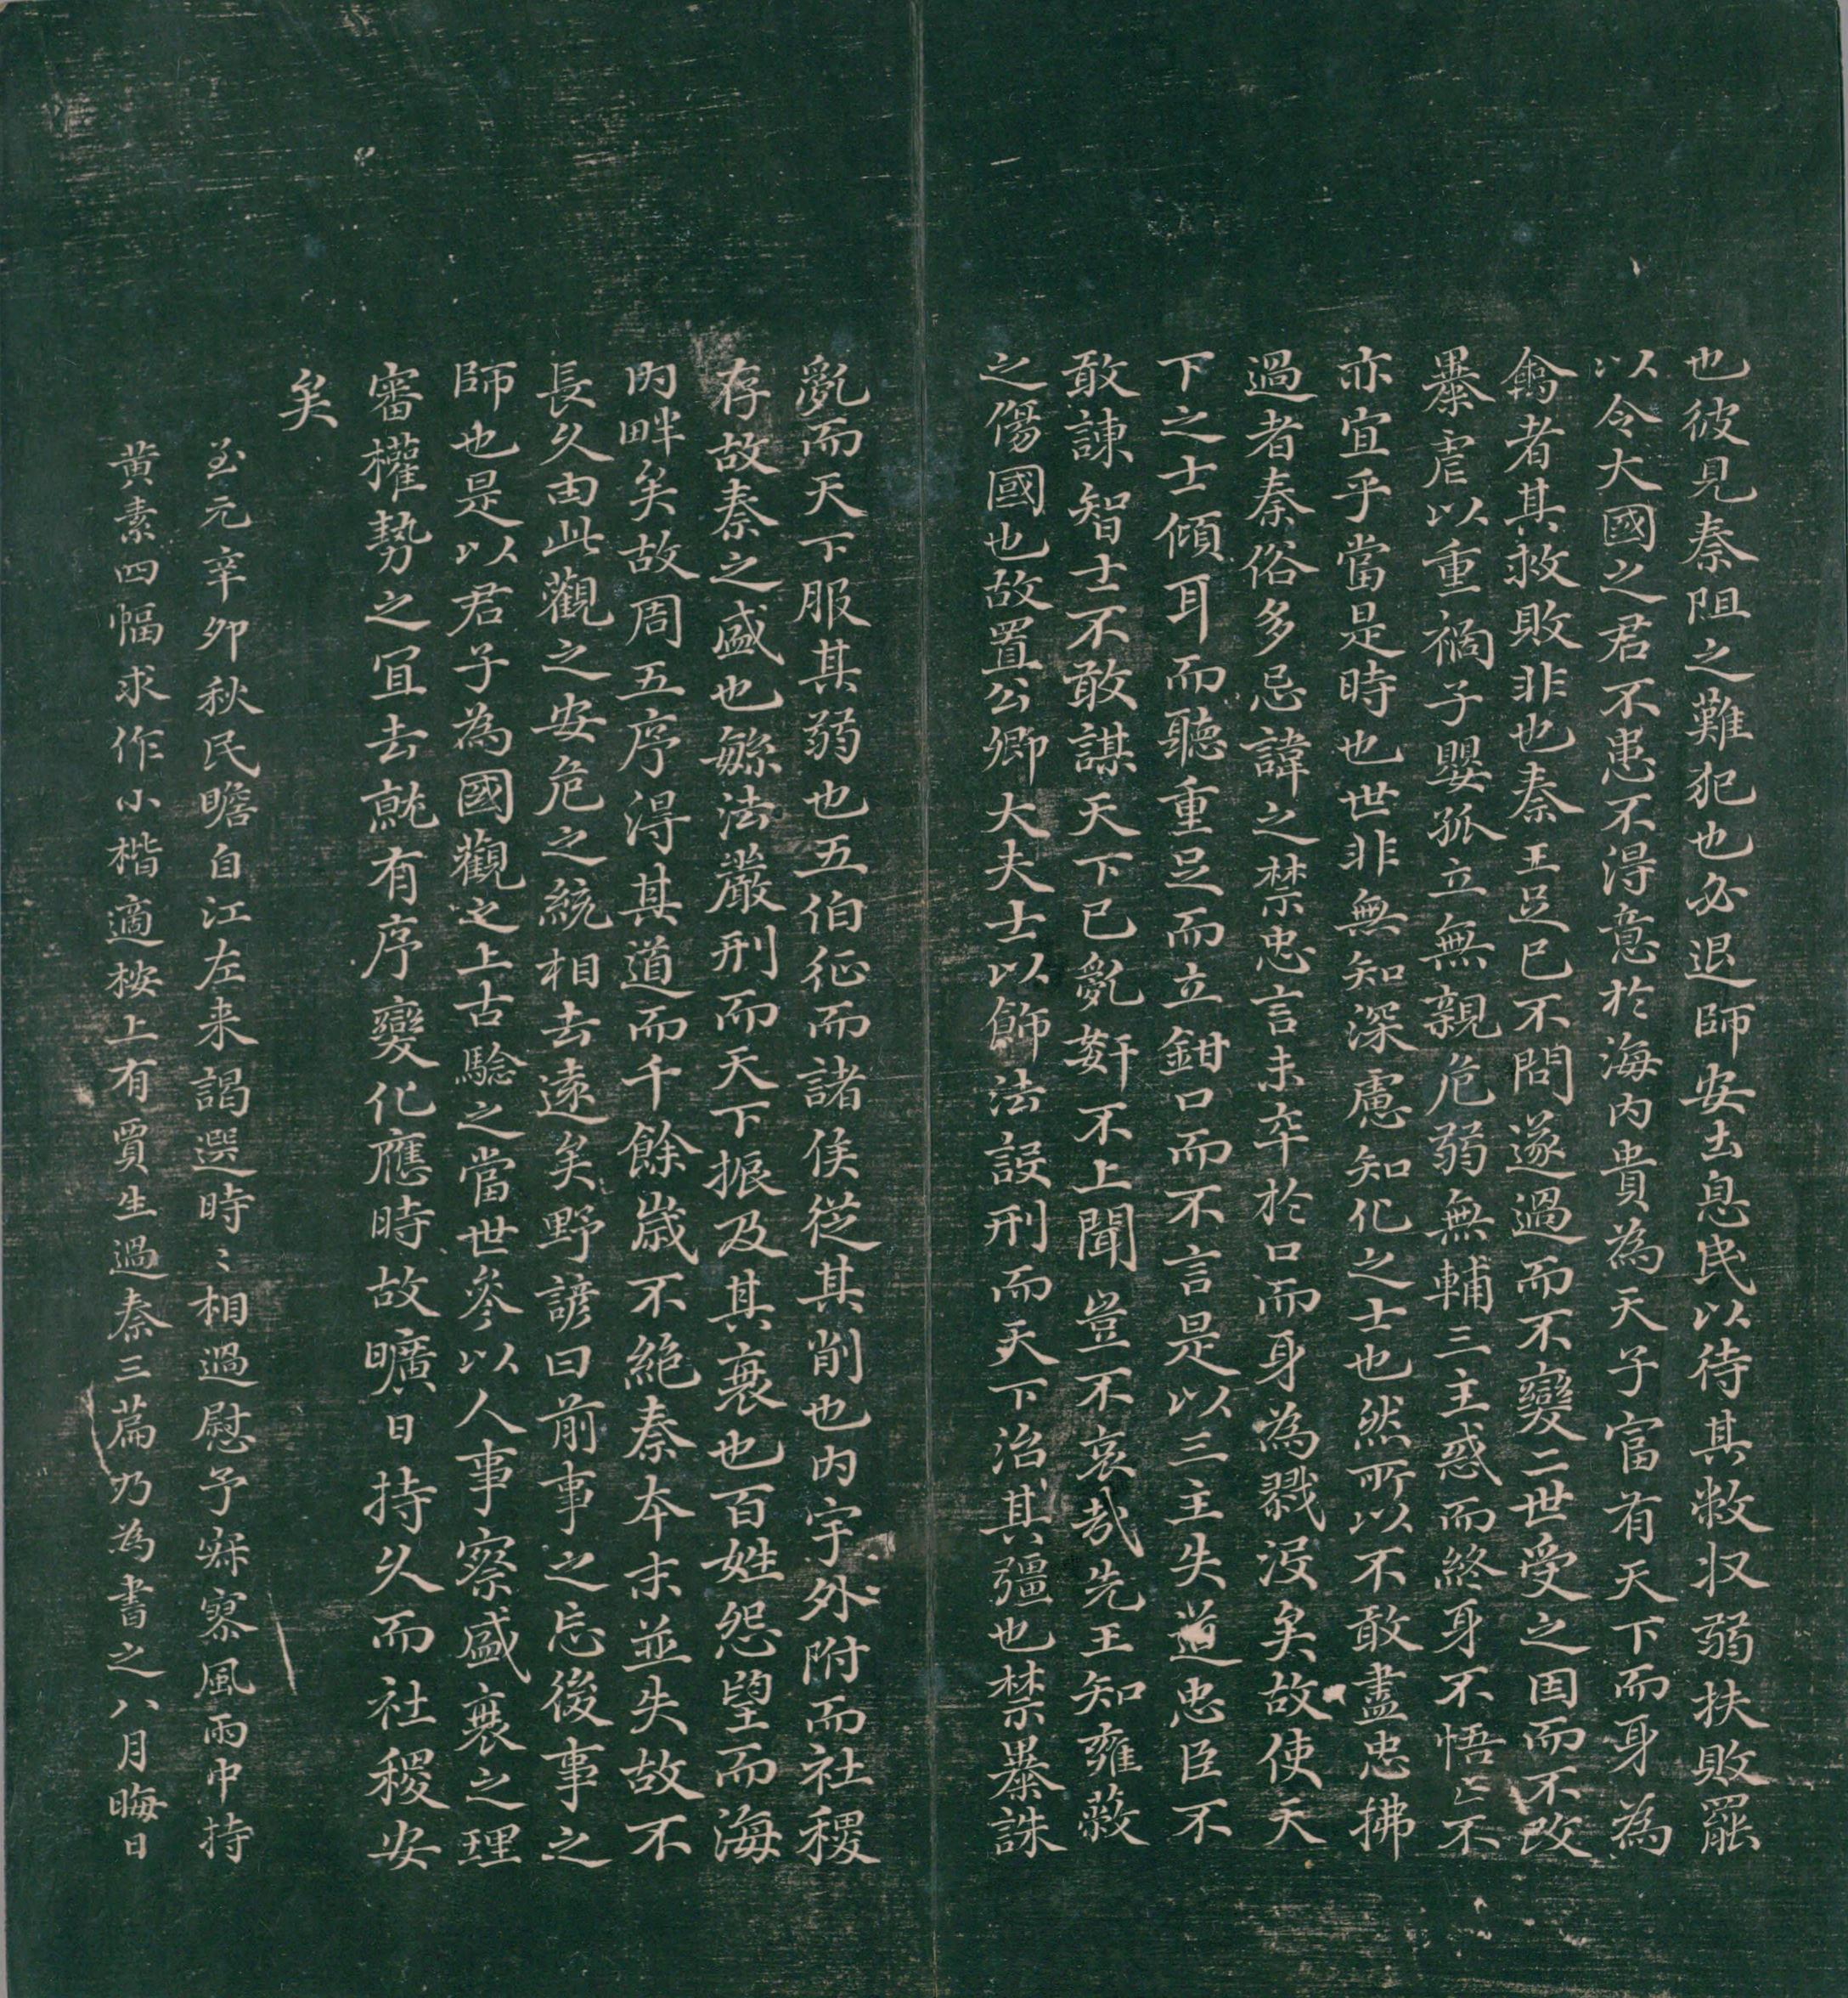 也彼見秦阻之難犯也必退師安土息民以待其敝収弱扶敗罷
以令大國之君不患不得意於海內貴為天子富有天下而身為
禽者其救敗非也秦王足已不問遂過而不變二世受之因而不改
暴虐以重禍子嬰孤立無親危弱無輔三主惑而終身不悟亡不
亦宜乎當是時也世非無知深慮知化之士也然所以不敢盡忠拂
過者秦俗多忌諱之禁忠言未卒於口而身為戮沒矣故使天
下之士傾耳而聽重足而立鉗口而不言是以三主失道忠臣不
敢諫智士不敢謀天下已亂姧不上聞豈不哀哉先王知雍蔽
之傷國也故置公卿大夫士以飾法設刑而天下治其彊也禁暴誅
亂而天下服其弱也五伯征而諸侯從其削也內守外附而社稷
存故秦之盛也繁法嚴刑而天下振及其衰也百姓怨望而海
內畔矣故周五序得其道而千餘歲不絕秦本末並失故不
長久由此觀之安危之統相去遠矣野諺曰前事之忘後事之
師也是以君子為國觀之上古驗之當世參以人事察盛衰之理
審權勢之宜去就有序變化應時故曠日持久而社稷安
矣
至元辛卯秋民瞻自江左来謁選時〻相過慰予寂寥風雨中持
黃素四幅求作小楷適桉上有賈生過秦三篇乃為書之八月晦日